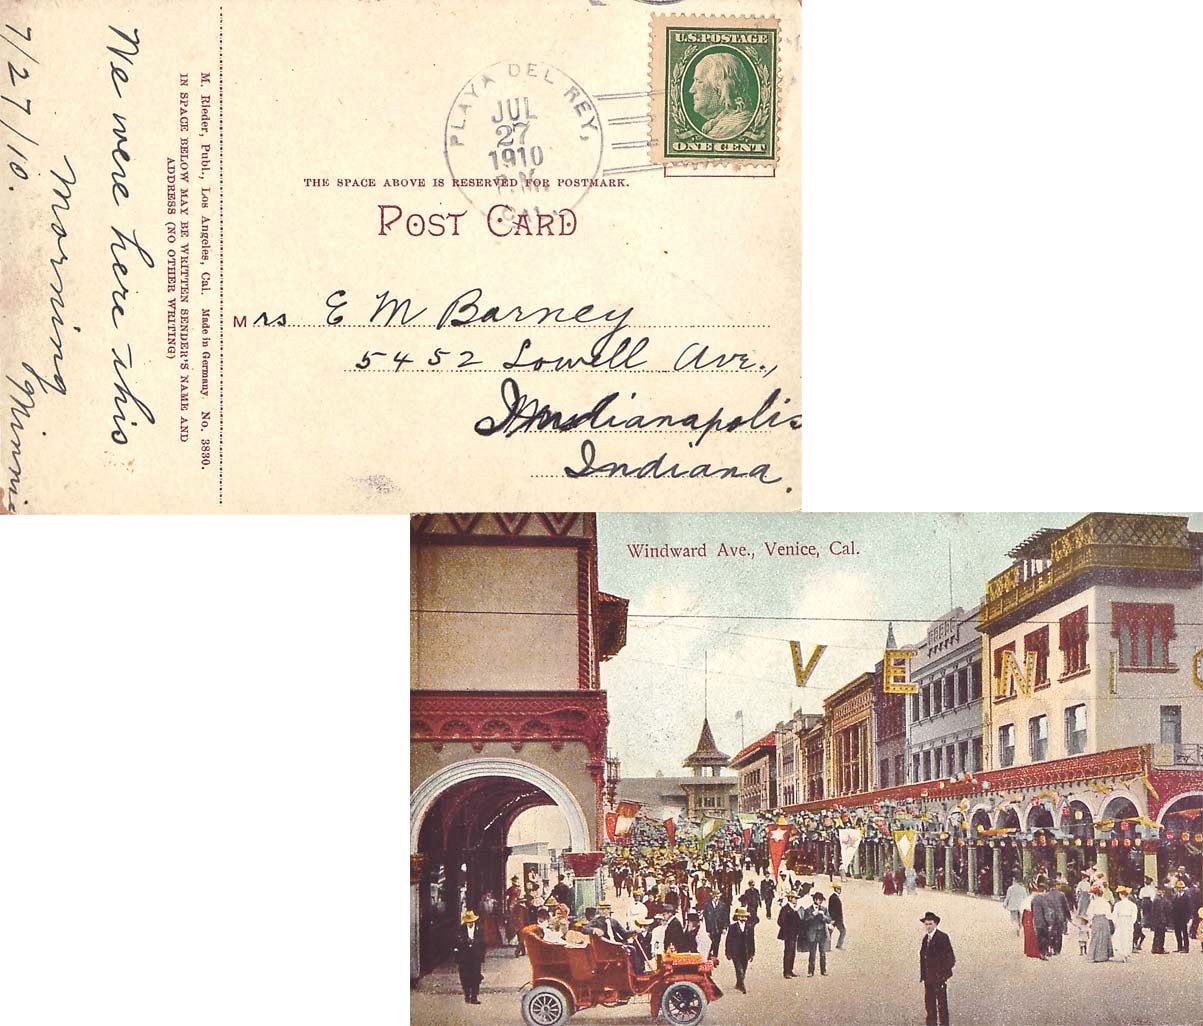 We were here this
Morning
7/27/10. Minnie
M. Rieder, Publ., Los Angeles, Cal. Made in Germany. No. 3830.
IN SPACE BELOW MAY BE WRITTEN SENDER'S NAME AND
ADDRESS (NO OTHER WRITING)
U.S. POSTAGE
ONE CENT
PLAYA DEL REY,
JUL
27
1910
P.M.
CAL.
THE SPACE ABOVE IS RESERVED FOR POSTMARK.
POST CARD
Mrs E M Barney
5452 Lowell Ave.,
Indianapolis
Indiana.
Windward Ave., Venice, Cal.
VENIC